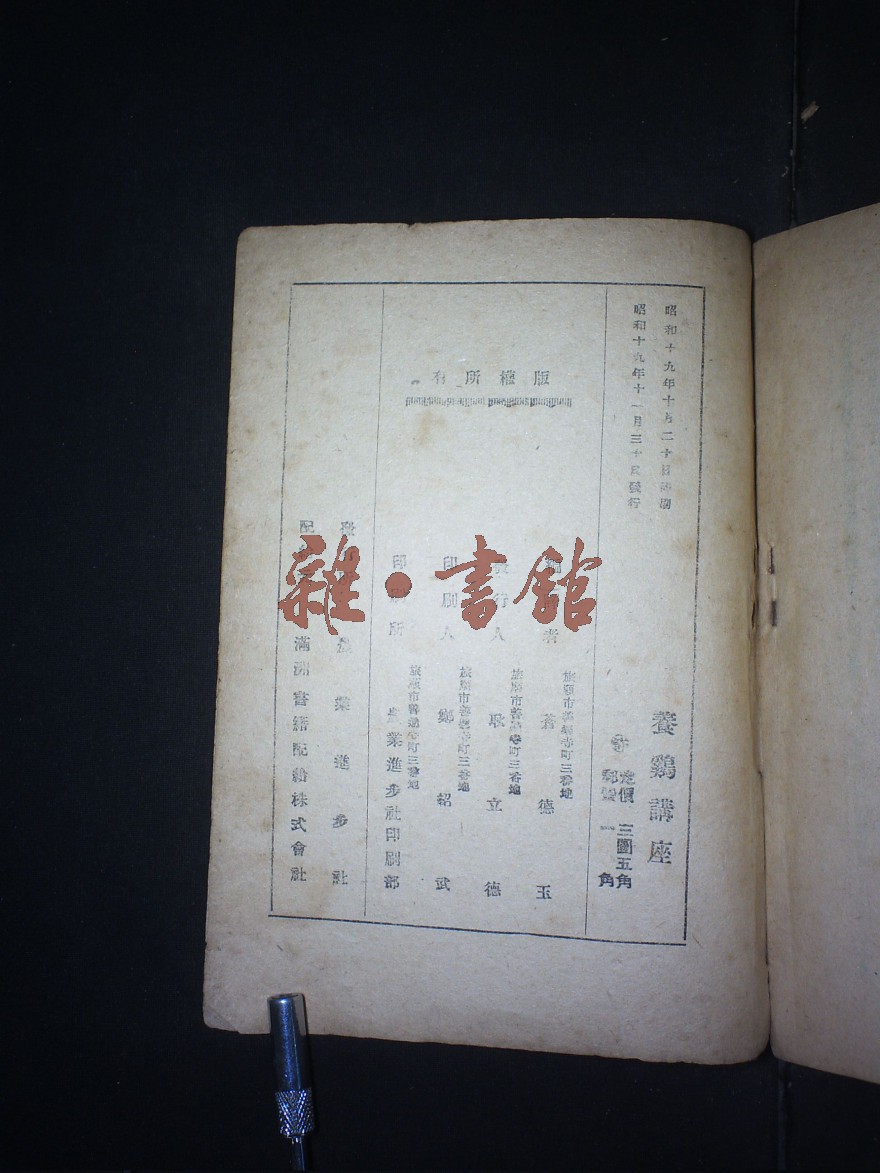 昭和十九年十月二十日印刷
昭和十九年十一月三十日發行
養鷄講座
定價 三圓五角
郵費 一角
版權所有
者
旅順市善通寺町三番地
蒼德玉
發行人
旅順市善通寺町三番地
耿立德
印刷人
旅順市善通寺町三番地
鄭紹武
印刷所
旅順市善通寺町三番地
農業進步社印刷部
發
農業進步社
配
滿洲書籍配給株式會社
雜·書館